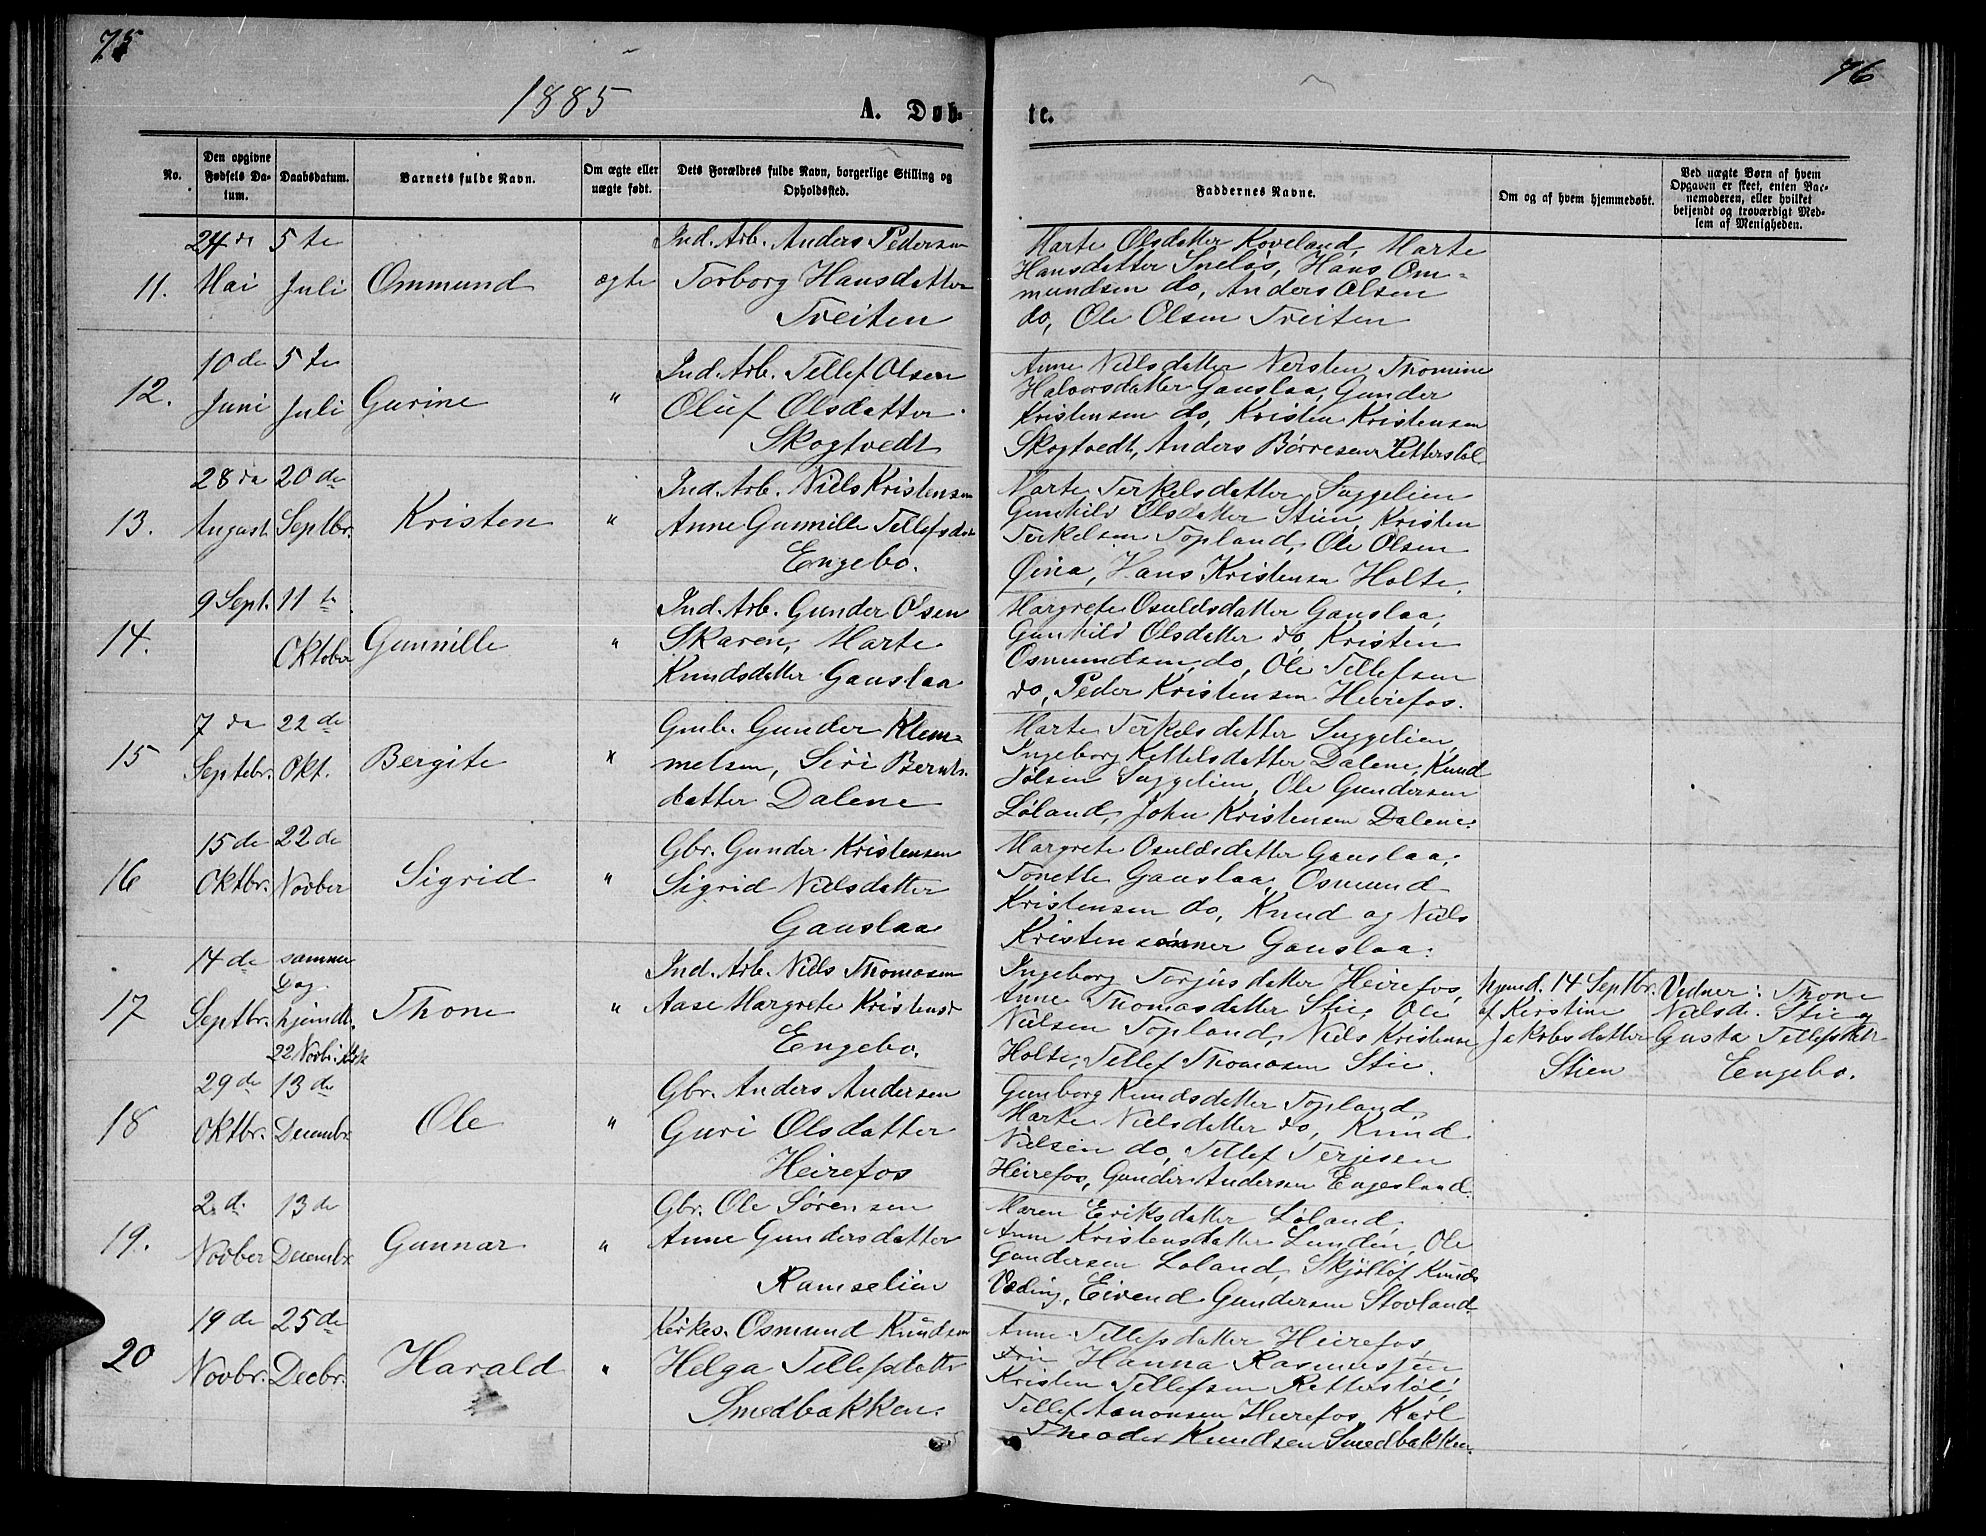 75
76
1885
A. Døb-
te.
No.
Den opgivne
Fødsels Da-
tum.
Daabsdatum.
Barnets fulde Navn.
Om ægte eller
uægte født.
Dets Forældres fulde Navn, borgerlige Stilling og
Opholdssted.
Faddernes Navne.
Om og af hvem hjemmedøbt.
Ved uægte Børn af hvem
Opgaven er skeet, enten Bar-
nemoderen, eller hvilket
bekjendt og troværdigt Med-
lem af Menigheden.
11.
24de
Mai
5te
Juli
Ommund
ægte
Ind. Arb. Anders Pedersen
Torborg Hansdatter
Treiten
Marte Olsdatter Koveland, Marte
Hansdatter Sneløs, Hans Om-
mundsen do, Anders Olsen
do, Ole Olsen Treiten
12.
10de
Juni
5te
Juli
Gurine
"
Ind. Arb. Tellef Olsen
Oluf Olsdatter
Skogtvedt
Anne Nielsdatter Nersten Thomine
Halvorsdatter Gauslaa, Gunder
Kristensen do, Kristen Kristensen
Skogtvedt, Anders Børresen Retterstøl
13.
28de
August
20de
Septbr.
Kristen
"
Ind. Arb. Niels Kristensen
Anne Gunnille Tellefsdtr
Engebo.
Marte Terkelsdatter Suggelien
Gunhild Olsdatter Stien, Kristen
Terkelsen Topland, Ole Olsen
Øina, Hans Kristensen Holte.
14.
9 Sept.
11te
Oktober
Gunnille
"
Ind. Arb. Gunder Olsen
Skaren, Marte
Knudsdatter Gauslaa
Margrete Osuldsdatter Gauslaa,
Gunhild Olsdatter do, Kristen
Osmundsen do, Ole Tellefsen
do, Peder Kristensen Heirefos.
15
7de
Septebr.
22de
Okt.
Bergite
"
Gmb. Gunder Klem-
metsen, Siri Bernts-
datter Dalene
Marte Terkelsdatter Suggelien,
Ingeborg Kettelsdatter Dalene, Knud
Nilsen Suggelien, Ole Gundersen
Løland, John Kristensen Dalene.
16
15de
Oktbr.
22de
Novber
Sigrid
"
Gbr. Gunder Kristensen
Sigrid Nielsdatter
Gauslaa
Margrete Osuldsdatter Gauslaa,
Tonette Gauslaa, Osmund
Kristensen do, Knud og Niels
Kristensønner Gauslaa.
17
14de
Septbr.
samme
Dag
hjemdt.
22 Novbr. i Kirke
Thone
"
Ind. Arb. Niels Thomasen
Aase Margrete Kristensd
Engebo.
Ingeborg Torjusdatter Heirefos,
Anne Thomasdatter Stie, Ole
Nielsen Topland, Niels Kristensen
Holte, Tellef Thomasen Stie.
hjemd. 14 Septbr.
af Kirstine
Jakobsdatter
Stien
Vidner: Thone
Nielsd. Stie og
Gusta Tellefsdatr
Engebo.
18
29de
Oktbr.
13de
Decembr
Ole
"
Gbr. Anders Andersen
Guri Olsdatter
Heirefos
Gunborg Knudsdatter Topland,
Marte Nielsdatter do, Knud
Nielsen do, Tellef Terjesen
Heirefos, Gunder Andersen Engesland.
19.
2.d.
Novber
13de
Decembr
Gunnar
"
Gbr. Ole Sørensen
Anne Gundersdatter
Ramselien
Maren Eriksdatter Løland,
Anne Kristensdatter Lunden, Ole
Gundersen Løland, Skjøllof Knuds
Væding, Eivend Gundersen Stovland.
20
19de
Novbr.
25de
Decbr.
Harald
"
Kirkes. Osmund Knudsen
Helga Tellefsdatter
Smedbakken.
Anne Tellefsdatter Heirefos,
Fru Hanna Rasmussen
Kristen Tellefsen Retterstøl,
Tellef Aanonsen Heirefos, Karl
Theodor Knudsen Smedbakken.